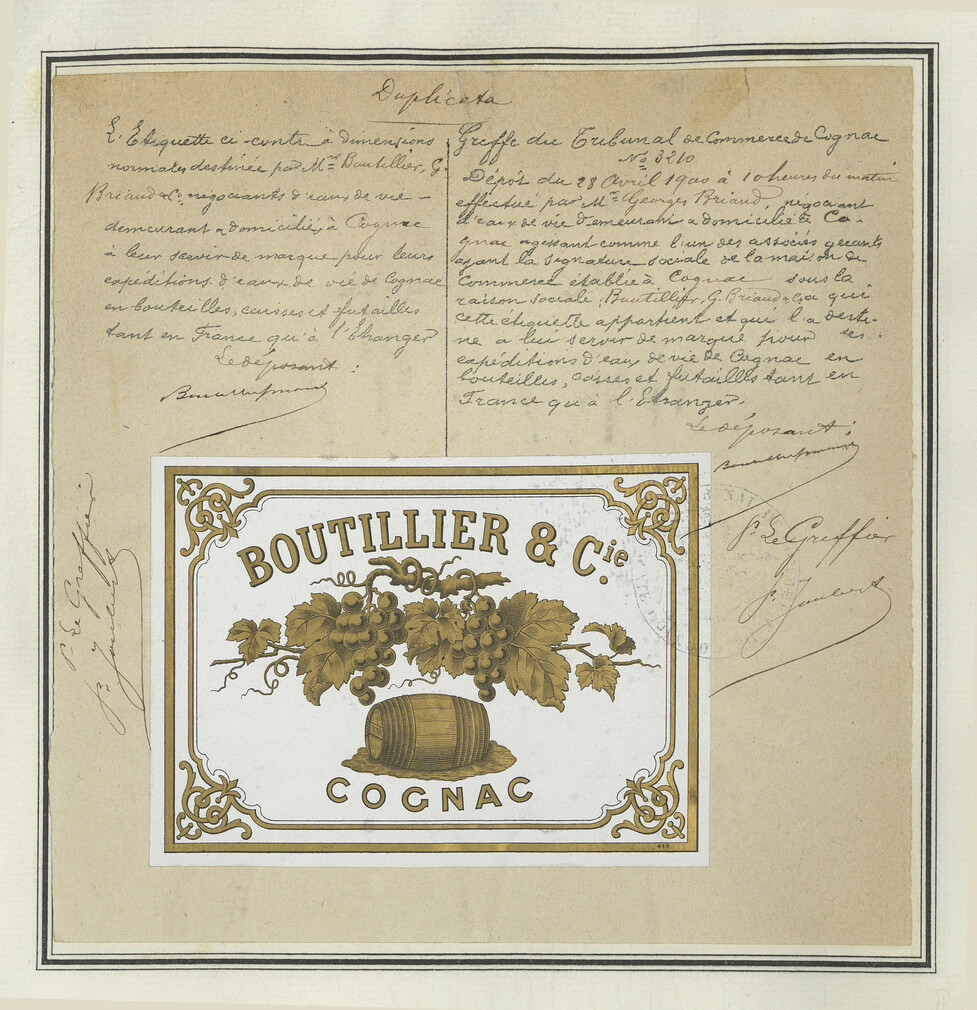 Duplicata
L'Etiquette ci-contre à dimensions
normales destinée par Mrs Boutillier, G.
Briand & Co négociants d'eaux de vie -
demeurant & domiciliés à Cognac
à leur servir de marque pour leurs
expéditions d'eaux de vie de Cognac
en bouteilles, caisses et futailles
tant en France qu'à l'Etranger
Le déposant :
Greffe du Tribunal de Commerce de Cognac
No 3210
Dépôt du 28 Avril 1900 à 10 heures du matin
effectué par Mr Georges Briand, négociant
d'eaux de vie demeurant & domicilié à Co-
gnac agissant comme l'un des associés gérants
ayant la signature sociale de la maison de
Commerce établie à Cognac sous la
raison sociale, Boutillier, G. Briand & Co à qui
cette étiquette appartient et qui l'a desti-
née à lui servir de marque pour ses
expéditions d'eaux de vie de Cognac en
bouteilles, caisses et futailles tant en
France qu'à l'Etranger.
Le déposant :
Pr Le Greffier
P. Le Greffier
BOUTILLIER & Cie
COGNAC
417